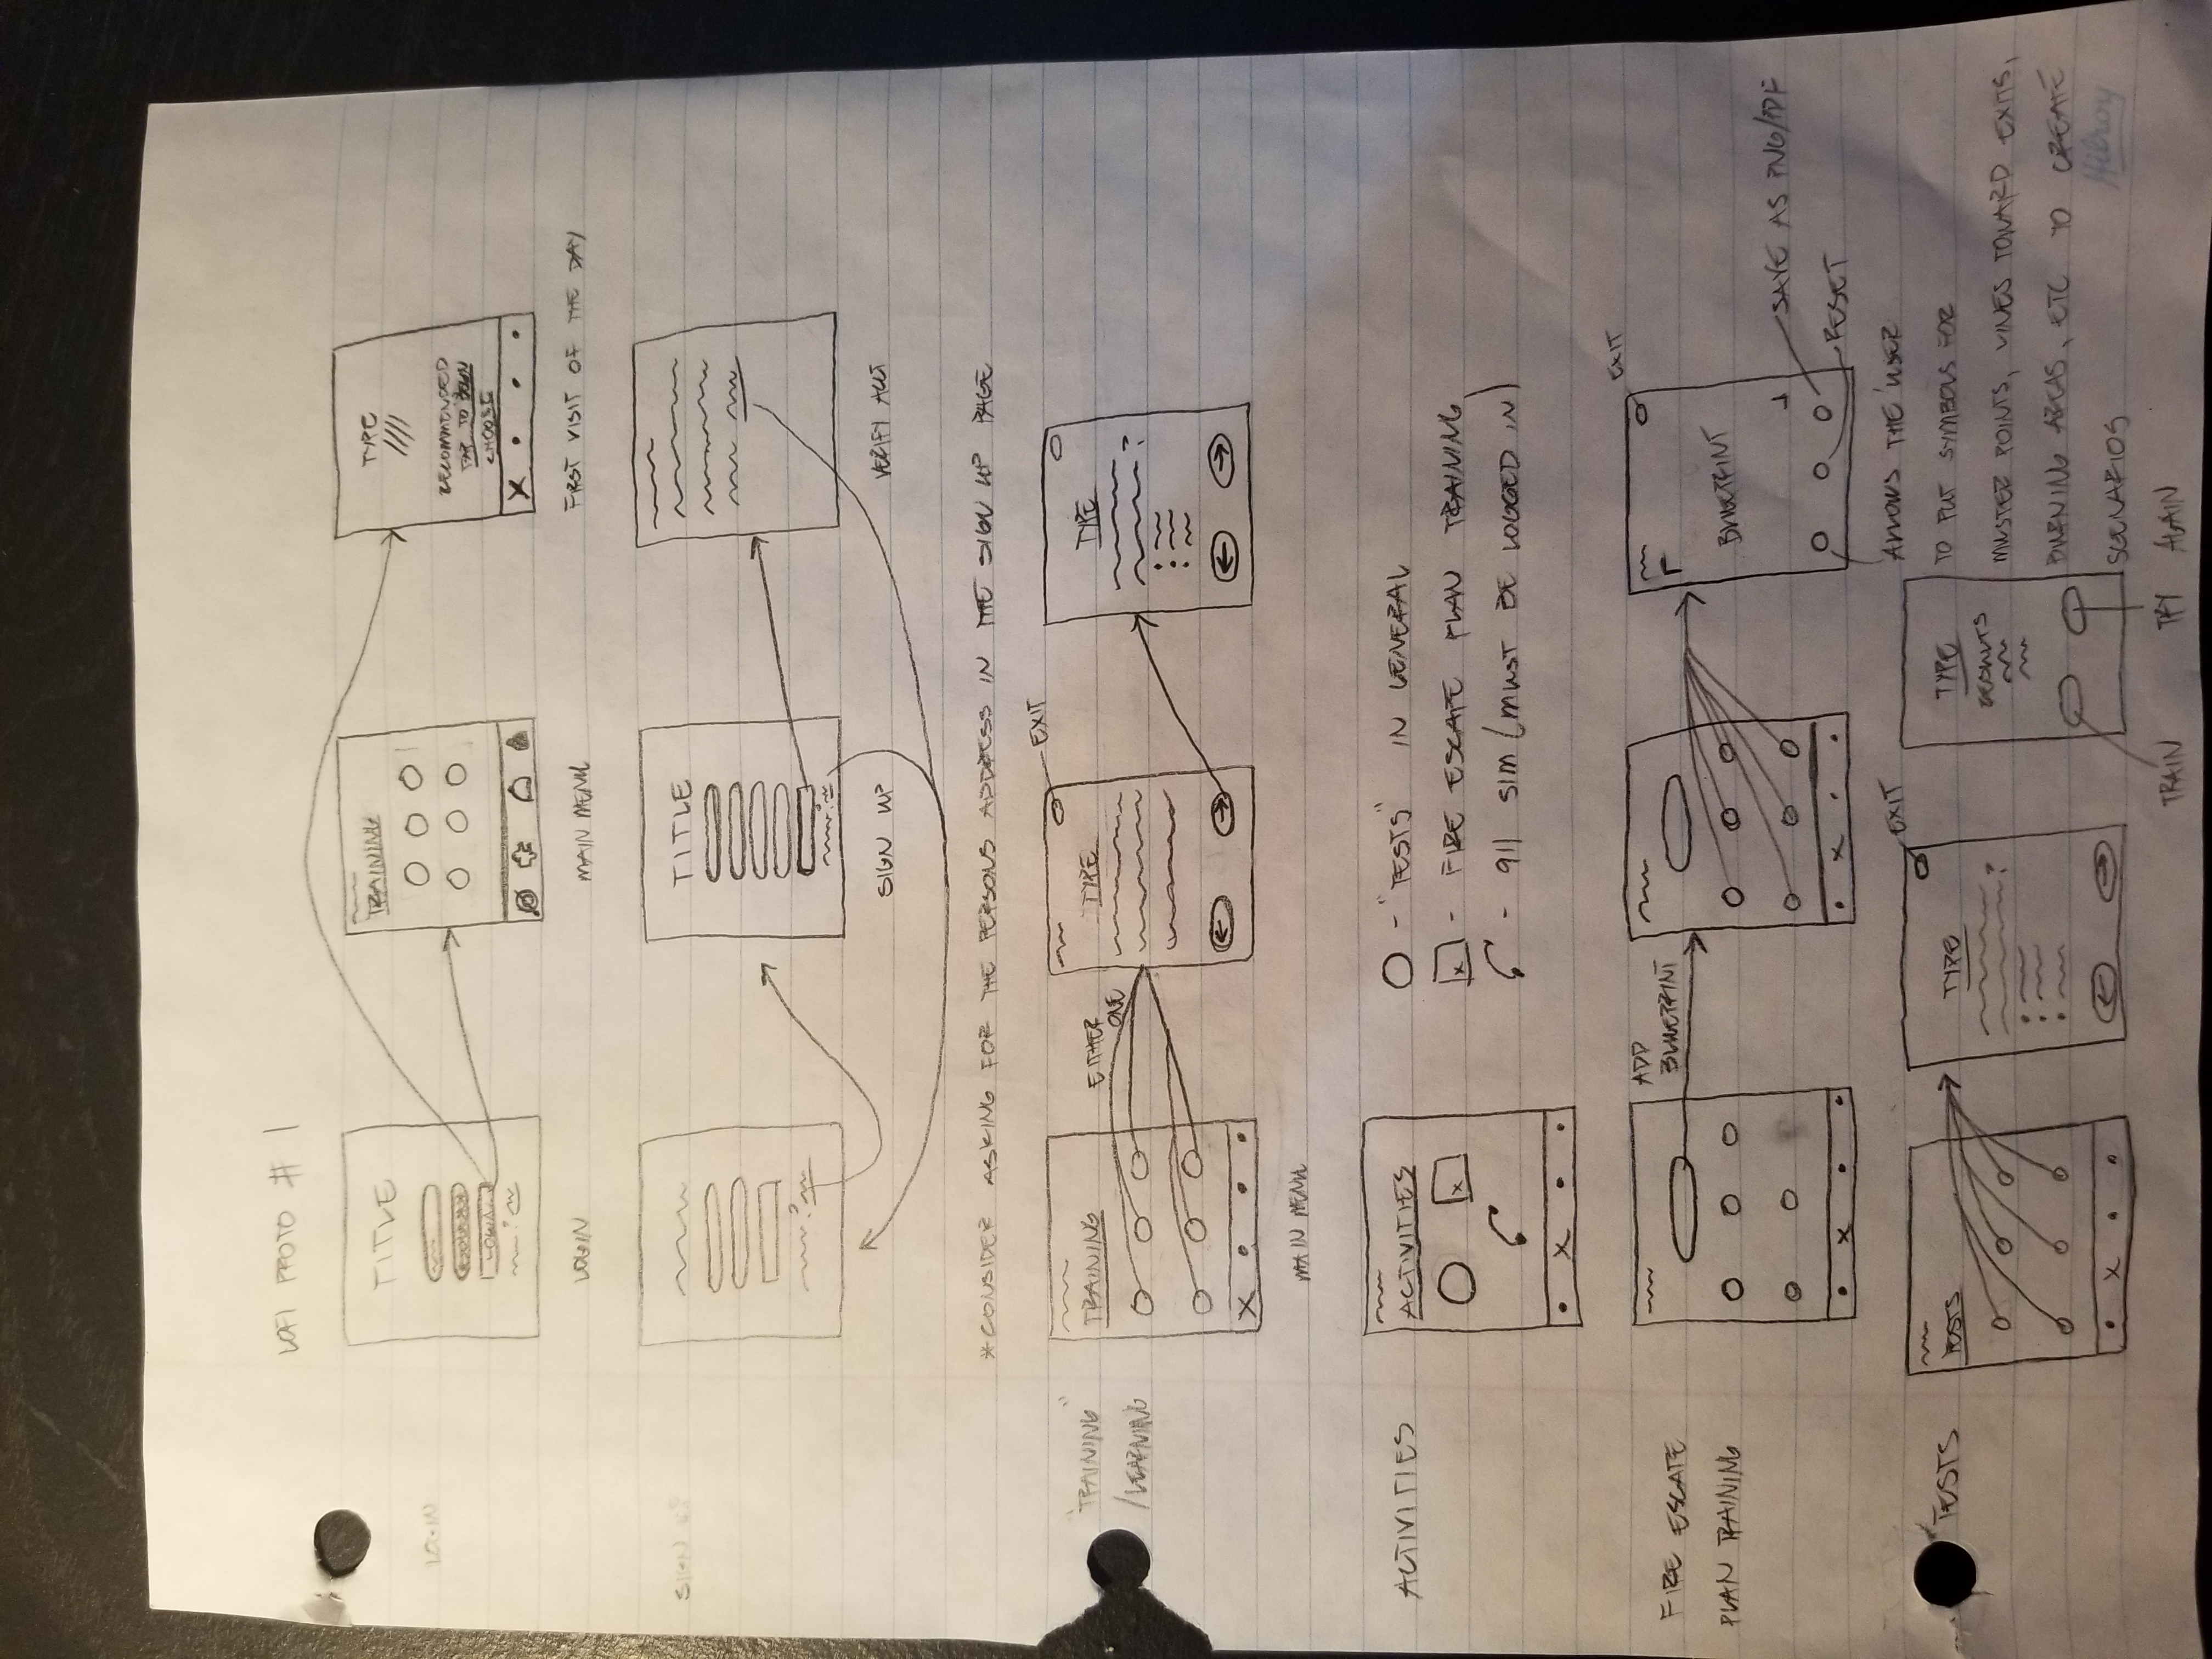 LOFI PROTO # 1
LOGIN
TITLE
LOGIN
TRAINING
TYPE
RECOMMENDED
TAP TO BEGIN
CHOOSE
LOGIN
MAIN MENU
FIRST VISIT OF THE DAY
SIGN UP
TITLE
SIGN UP
VERIFY ACCT
*CONSIDER ASKING FOR THE PERSONS ADDRESS IN THE SIGN UP PAGE
"TRAINING"
/LEARNING
TRAINING
EITHER
ONE
EXIT
TYPE
TYPE
?
MAIN MENU
ACTIVITIES
ACTIVITIES
- "TESTS" IN GENERAL
- FIRE ESCAPE PLAN TRAINING
- 911 SIM (MUST BE LOGGED IN)
FIRE ESCAPE
PLAN TRAINING
ADD
BLUEPRINT
EXIT
BLUEPRINT
SAVE AS PNG/PDF
RESET
ALLOWS THE USER
TO PUT SYMBOLS FOR
MUSTER POINTS, LINES TOWARD EXITS,
BURNING AREAS, ETC TO CREATE
SCENARIOS
TESTS
TESTS
EXIT
TYPE
?
TYPE
RESULTS
TRAIN
TRY AGAIN
Hilroy